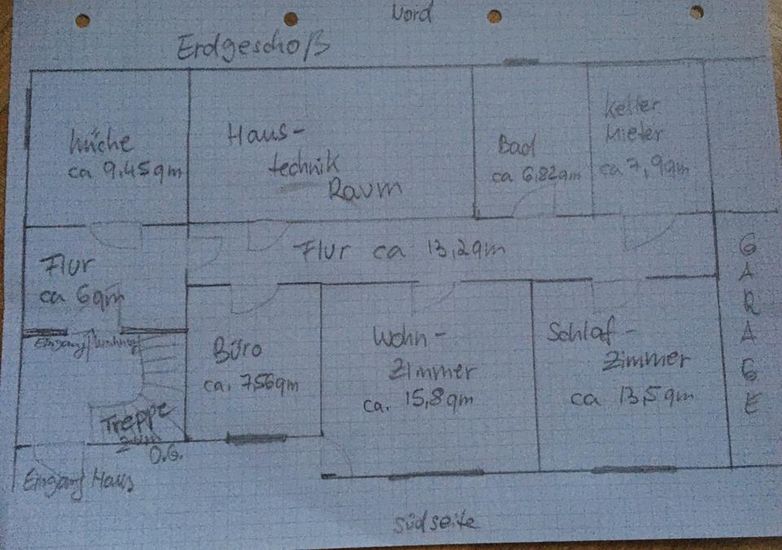 Nord
Erdgeschoß
Küche
ca 9,45qm
Haus-
technik
Raum
Bad
ca 6,82qm
Keller
Mieter
ca 7,9qm
Flur
ca 6qm
Flur ca 13,2qm
GARAGE
Eingang Wohnung
Büro
ca. 7,56qm
Wohn-
Zimmer
ca. 15,8qm
Schlaf-
Zimmer
ca 13,5qm
Treppe
zum
O.G.
Eingang Haus
Südseite